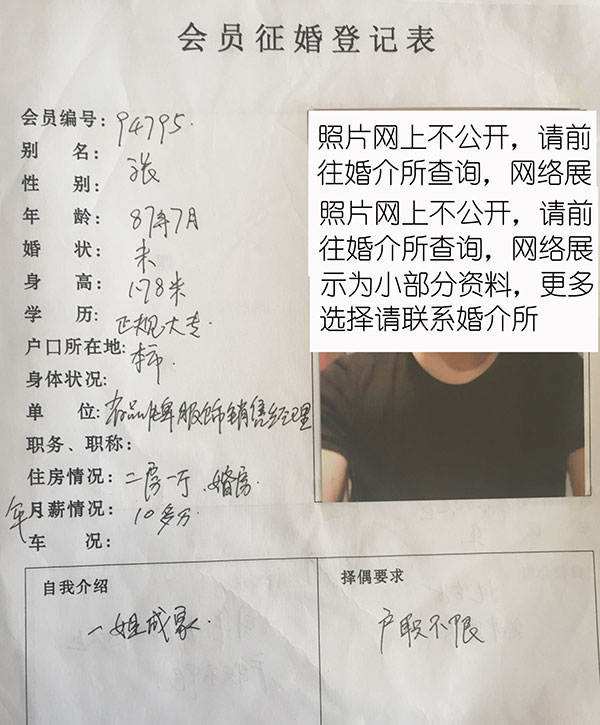 会员征婚登记表
会员编号: 94795.
别 名: 张
性 别:
年 龄: 87年7月
婚 状: 未
身 高: 1.78米
学 历: 正规大专
户口所在地: 本市.
身体状况:
单 位: 品牌服饰销售经理
职务、职称:
住房情况: 二房一厅、婚房.
年月薪情况: 10多万
车 况:
照片网上不公开，请前
往婚介所查询，网络展
照片网上不公开，请前
往婚介所查询，网络展
示为小部分资料，更多
选择请联系婚介所
自我介绍
一姐成家.
择偶要求
户职不限